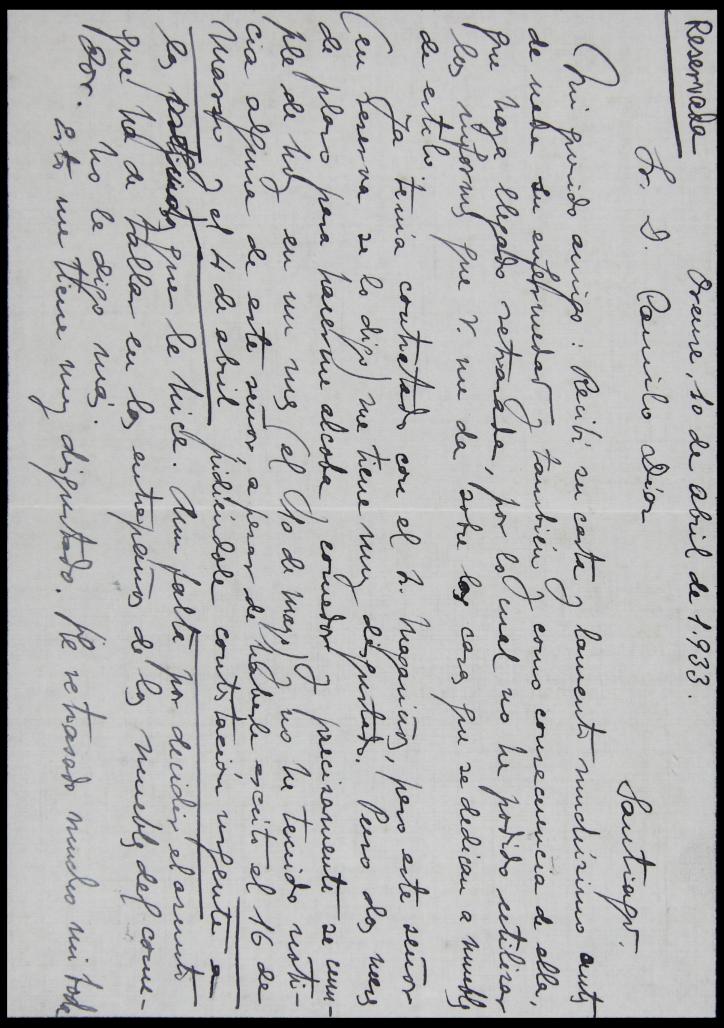 Reservada
Orense, 10 de abril de 1.933.
Sr. D. Camilo Díaz
Santiago.
Mi querido amigo: Recibí su carta y lamento muchísimo antes
de nada su enfermedad y también y como consecuencia de ella,
que haya llegado retrasada, por lo cual no he podido utilizar
los informes que V. me da sobre las casas que se dedican a muebles
de estilo.
Ya tenía contratado con el Sr. Magariños, pero este señor
(en reserva se lo digo) me tiene muy disgustado. Puso dos meses
de plazo para hacerme alcoba y comedor y precisamente se cum-
ple de hoy en un mes (el 10 de mayo) y no he tenido noti-
cia alguna de este señor a pesar de haberle escrito el 16 de
Marzo y el 4 de abril pidiéndole contestación urgente a
las preguntas que le hice. Aun falta por decidir el asunto
que ha de tallar en los entrepaños de los muebles del come-
dor. No le digo más.
Esto me tiene muy disgustado. He retrasado mucho mi boda